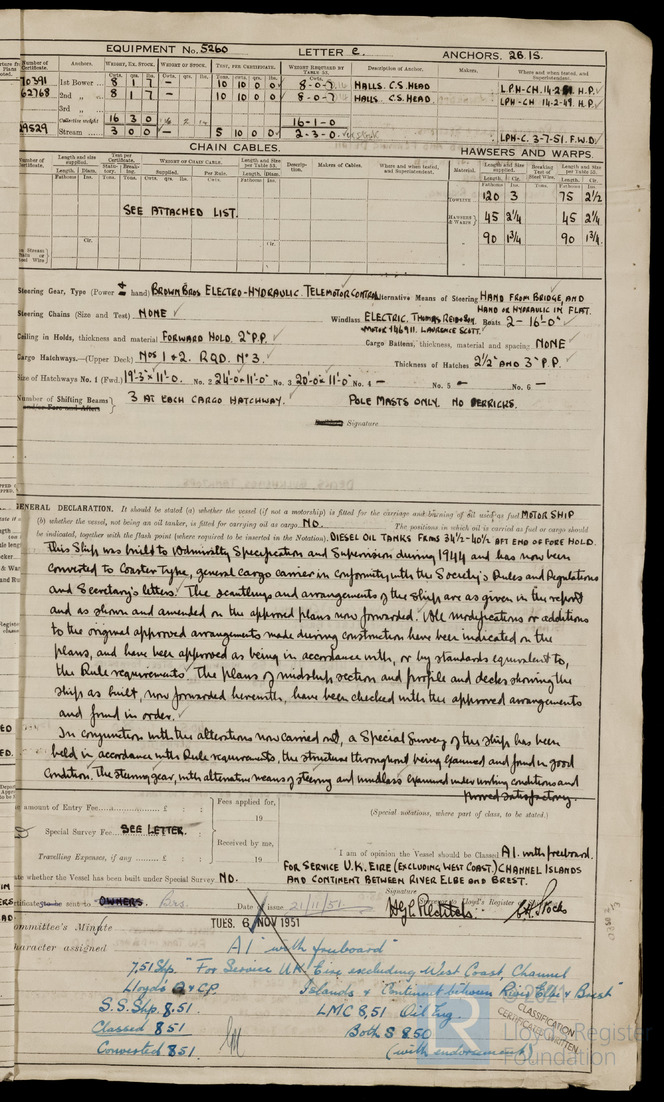 EQUIPMENT No. 5260 LETTER e. ANCHORS. 2B.1S.
Number of Certificate. Anchors. WEIGHT, EX. STOCK. WEIGHT OF STOCK. TEST, PER CERTIFICATE. WEIGHT REQUIRED BY TABLE 53. Description of Anchor. Makers. Where and when tested, and Superintendent.
70391 1st Bower 8 1 7 – 10 10 0 0 8-0-7 HALLS. C.S. HEAD L.PH-CH 14-2-51. H.P.
62768 2nd „ 8 1 7 – 10 10 0 0 8-0-7 HALLS. C.S. HEAD. LPH-CH 14-2-49. H.P.
3rd „
Collective weight 16 3 0 16-1-0
29529 Stream 3 0 0 – 5 10 0 0 2-3-0 LPH-C. 3-7-51. F.W.D.
CHAIN CABLES. HAWSERS AND WARPS.
Number of Certificate. Length and size supplied. Test per Certificate. WEIGHT OF CHAIN CABLE. Length and Size per Table 53. Description. Makers of Cables. Where and when tested, and Superintendent. Material. Length and Size supplied. Breaking Test of Steel Wire. Length and Size per Table 53.
Fathoms Ins. Tons. Tons. Supplied. Per Rule. Length. Diam. Fathoms Ins. Tons. Fathoms Ins.
TOWLINE 120 3 75 2½
SEE ATTACHED LIST. HAWSERS & WARPS 45 2¼ 45 2¼
„ 90 1¾ 90 1¾
Steering Gear, Type (Power & hand) BROWN BROS ELECTRO-HYDRAULIC. TELEMOTOR CONTROL Alternative Means of Steering HAND FROM BRIDGE, AND
HAND OR HYDRAULIC IN FLAT.
Steering Chains (Size and Test) NONE Windlass ELECTRIC. THOMAS REID & SON. Boats 2-16'-0"
MOTOR 146911. LAWRENCE SCOTT.
Ceiling in Holds, thickness and material FORWARD HOLD. 2" P.P. Cargo Battens, thickness, material and spacing NONE
Cargo Hatchways.—(Upper Deck) Nos 1 & 2. R.Q.D. No 3. Thickness of Hatches 2½" AND 3" P.P.
Size of Hatchways No. 1 (Fwd.) 19'-3" x 11'-0. No. 2 24'-0 x 11'-0" No. 3 20-0 x 11'-0 No. 4 – No. 5 – No. 6 –
Number of Shifting Beams and/or Fore and Afters } 3 AT EACH CARGO HATCHWAY. POLE MASTS ONLY. NO DERRICKS.
Signature
GENERAL DECLARATION. It should be stated (a) whether the vessel (if not a motorship) is fitted for the carriage and burning of oil used as fuel MOTOR SHIP
(b) whether the vessel, not being an oil tanker, is fitted for carrying oil as cargo NO. The positions in which oil is carried as fuel or cargo should
be indicated, together with the flash point (where required to be inserted in the Notation). DIESEL OIL TANKS FRMS 34½-40½ AFT END OF FORE HOLD.
This Ship was built to Admiralty Specification and Supervision during 1944 and has now been
converted to Coaster Type, general cargo carrier in conformity with the Society's Rules and Regulations
and Secretary's letters. The scantlings and arrangements of the Ship are as given in the report
and as shown and amended on the approved plans now forwarded. All modifications or additions
to the original approved arrangements made during construction have been indicated on the
plans, and have been approved as being in accordance with, or by standards equivalent to,
the Rule requirements. The plans of midship section and profile and decks showing the
ship as built, now forwarded herewith, have been checked with the approved arrangements
and found in order.
In conjunction with the alterations now carried out, a Special Survey of the ship has been
held in accordance with Rule requirements, the structure throughout being examined and found in good
condition. The steering gear, with alternative means of steering and windlass examined under working conditions and
proved satisfactory.
amount of Entry Fee £ : : Fees applied for, 19
(Special notations, where part of class, to be stated.)
Special Survey Fee SEE LETTER. Received by me,
Travelling Expenses, if any £ : : 19
I am of opinion the Vessel should be Classed A1. with freeboard.
FOR SERVICE U.K. EIRE (EXCLUDING WEST COAST.) CHANNEL ISLANDS
State whether the Vessel has been built under Special Survey NO. AND CONTINENT BETWEEN RIVER ELBE AND BREST.
Signature
Certificate to be sent to OWNERS. Date of issue 21/11/51. Surveyor to Lloyd's Register
Committee's Minute TUES. 6 NOV 1951
Character assigned A1 "with freeboard"
7,51 Shp. "For Service U.K. Eire excluding West Coast, Channel
Lloyds A & CP. Islands & Continent between River Elbe & Brest"
S.S. Shp. 8,51. LMC 8,51 Oil Eng.
Classed 8 51 Both S 8.50
Converted 8.51. (with endorsement)
CLASSIFICATION CERTIFICATE WRITTEN
Lloyd's Register
Foundation